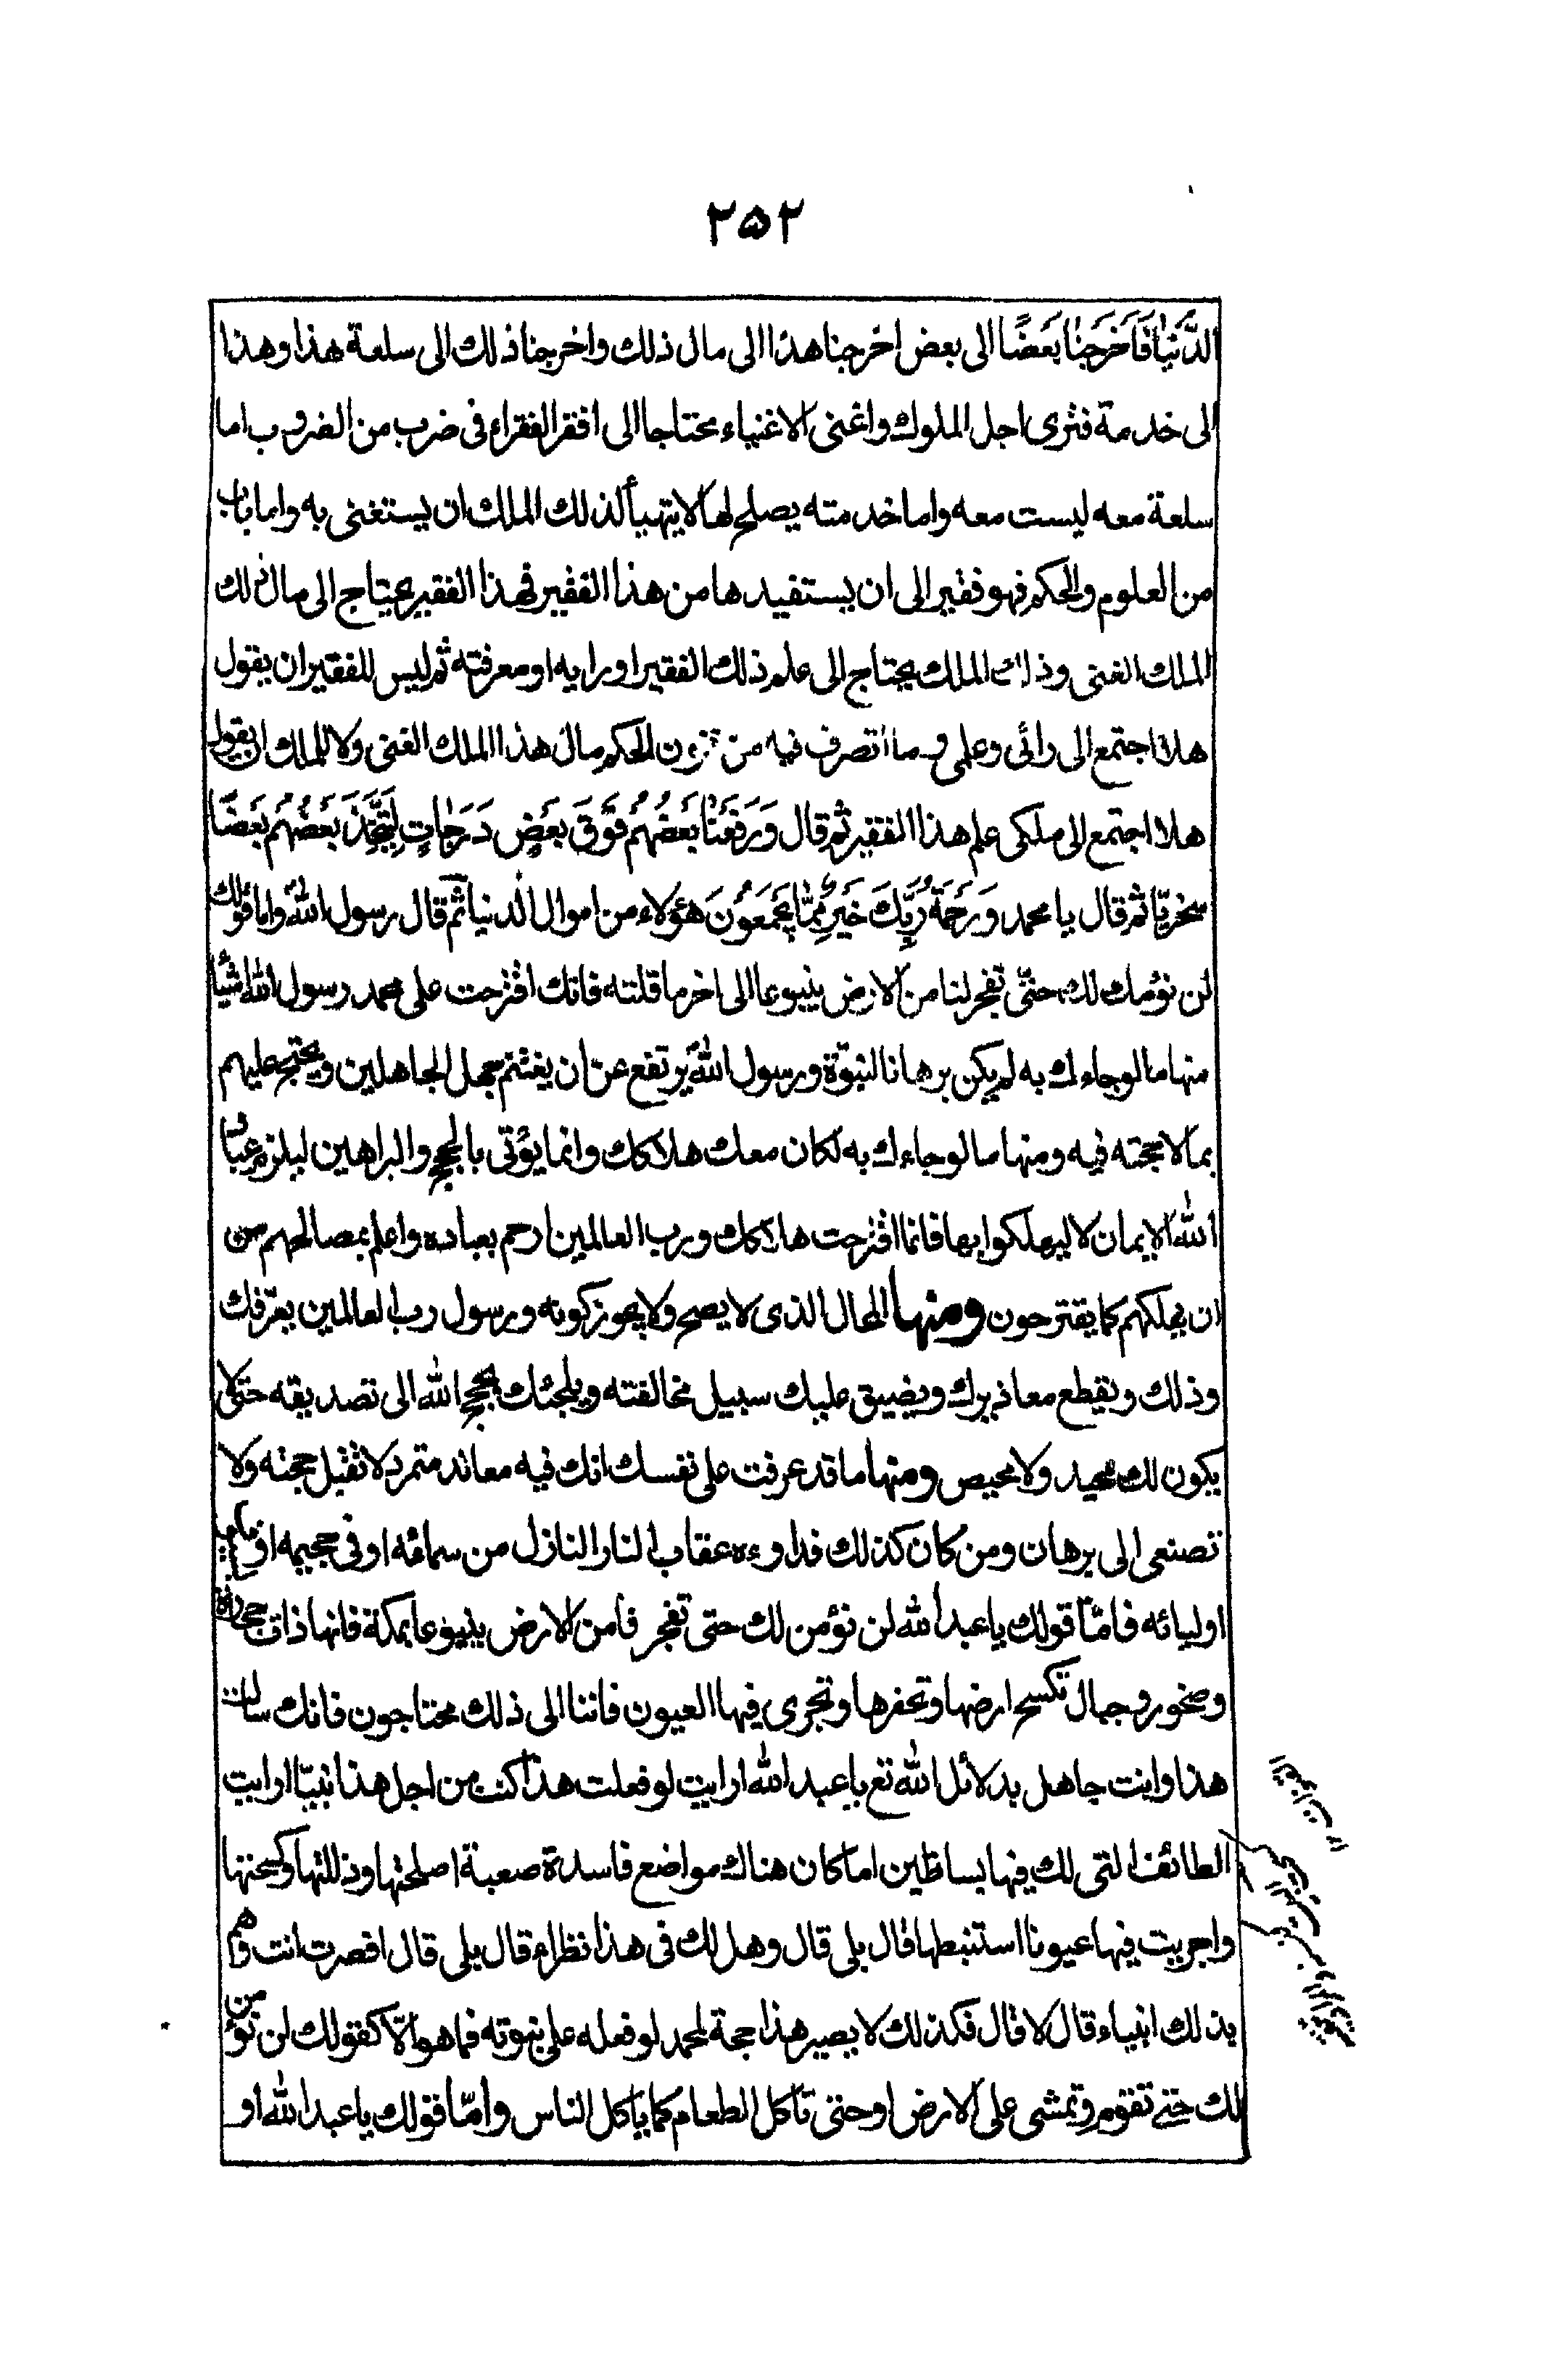 ۲۵۲
الدُّنْيٰا فَاَخْرَجْنٰا بَعْضًا الى بعض اخرجنا هذا الى مال ذلك واخرجنا ذلك الى سلعة هذا وهذا
الى خدمة فترى اجل الملوك واغنى الاغنياء محتاجا الى افقر الفقراء فى ضرب من الضروب اما
سلعة معه ليست معه واما خدمته يصلح لها لا يتهيأ لذلك الملك ان يستغنى به واما باب
من العلوم والحكم فهو فقير الى ان يستفيدها من هذا الفقير فهذا الفقير يحتاج الى مال ذلك
الملك الغنى وذلك الملك يحتاج الى علم ذلك الفقير او رايه او معرفته ثم ليس للفقير ان يقول
هلا اجتمع الى رائى وعلمى وما اتصرف فيه من الحكم مال هذا الملك الغنى ولا للملك ان يقول
هلا اجتمع الى ملكى علم هذا الفقير ثم قال وَرَفَعْنٰا بَعْضَهُمْ فَوْقَ بَعْضٍ دَرَجٰاتٍ لِيَتَّخِذَ بَعْضُهُمْ بَعْضًا
سخريّا ثم قال يا محمد وَرَحْمَةُ رَبِّكَ خَيْرٌ مِمّٰا يَجْمَعُونَ هؤلاء من اموال الدنيا ثم قال رسول الله واما قولك
لن نؤمن لك حتّى تفجر لنا من الارض ينبوعا الى اخر ما قلته فانك اقترحت على محمد رسول الله اشيأ
منها ما لو جاءك به لم يكن برهانا لنبوّة ورسول الله يرتفع عن ان يغتنم جهل الجاهلين ويحتج عليهم
بما لا حجته فيه ومنها ما لو جاءك به لكان معك هلاكك وانما يؤتى بالحجج والبراهين ليلزم عباد
الله الايمان لا ليهلكوا بها فانما اقترحت هلاكك ورب العالمين ارحم بعباده واعلم بمصالحهم من
ان يهلكهم كما يقترحون ومنها المحال الذى لا يصح ولا يجوز كونه ورسول رب العالمين يعرّفك
وذلك ويقطع معاذيرك ويضيق عليك سبيل مخالفته ويلجئك بحجج الله الى تصديقه حتى لا
يكون لك محيد ولا محيص ومنها ما قد عرفت على نفسك انك فيه معاند متمرد لا تقبل حجته ولا
تصغى الى برهان ومن كان كذلك فداوءه عقاب النار النازل من سمائه او فى جحيمه او
اوليائه فامّا قولك يا عبد الله لن نؤمن لك حتى تفجر فا من الارض ينبوعا بمكة فانها ذات حجارة
وصخور وجبال تكسح ارضها وتحفرها وتجرى فيها العيون فاننا الى ذلك محتاجون فانك سالت
هذا وانت جاهل بدلائل الله تع يا عبد الله ارايت لو فعلت هذا كنت من اجل هذا نبيّا ارايت
الطائف التى لك فيها بساطين اما كان هناك مواضع فاسدة صعبة اصلحتها وذللتها وكسحتها
واجريت فيها عيونا استنبطها قال بلى قال وهل لك فى هذا نظراء قال بلى قال افصرت انت وهم
بذلك انبياء قال لا قال فكذلك لا يصير هذا حجة لمحمد لو فعله على نبوته فما هو الّا كقولك لن نؤمن
لك حتى تقوم وتمشى على الارض او حتى تأكل الطعام كما يأكل الناس وامّا قولك يا عبد الله او